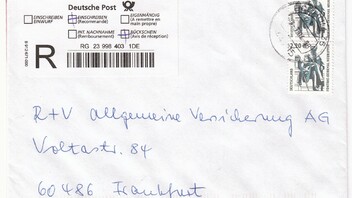 Deutsche Post
EINSCHREIBEN EINWURF
EINSCHREIBEN (Recommandé)
EIGENHÄNDIG (A remettre en main propre)
INT. NACHNAHME (Remboursement)
RÜCKSCHEIN (Avis de réception)
R
RG 23 998 403 1DE
R+V Allgemeine Versicherung AG
Voltastr. 84
60486 Frankfurt